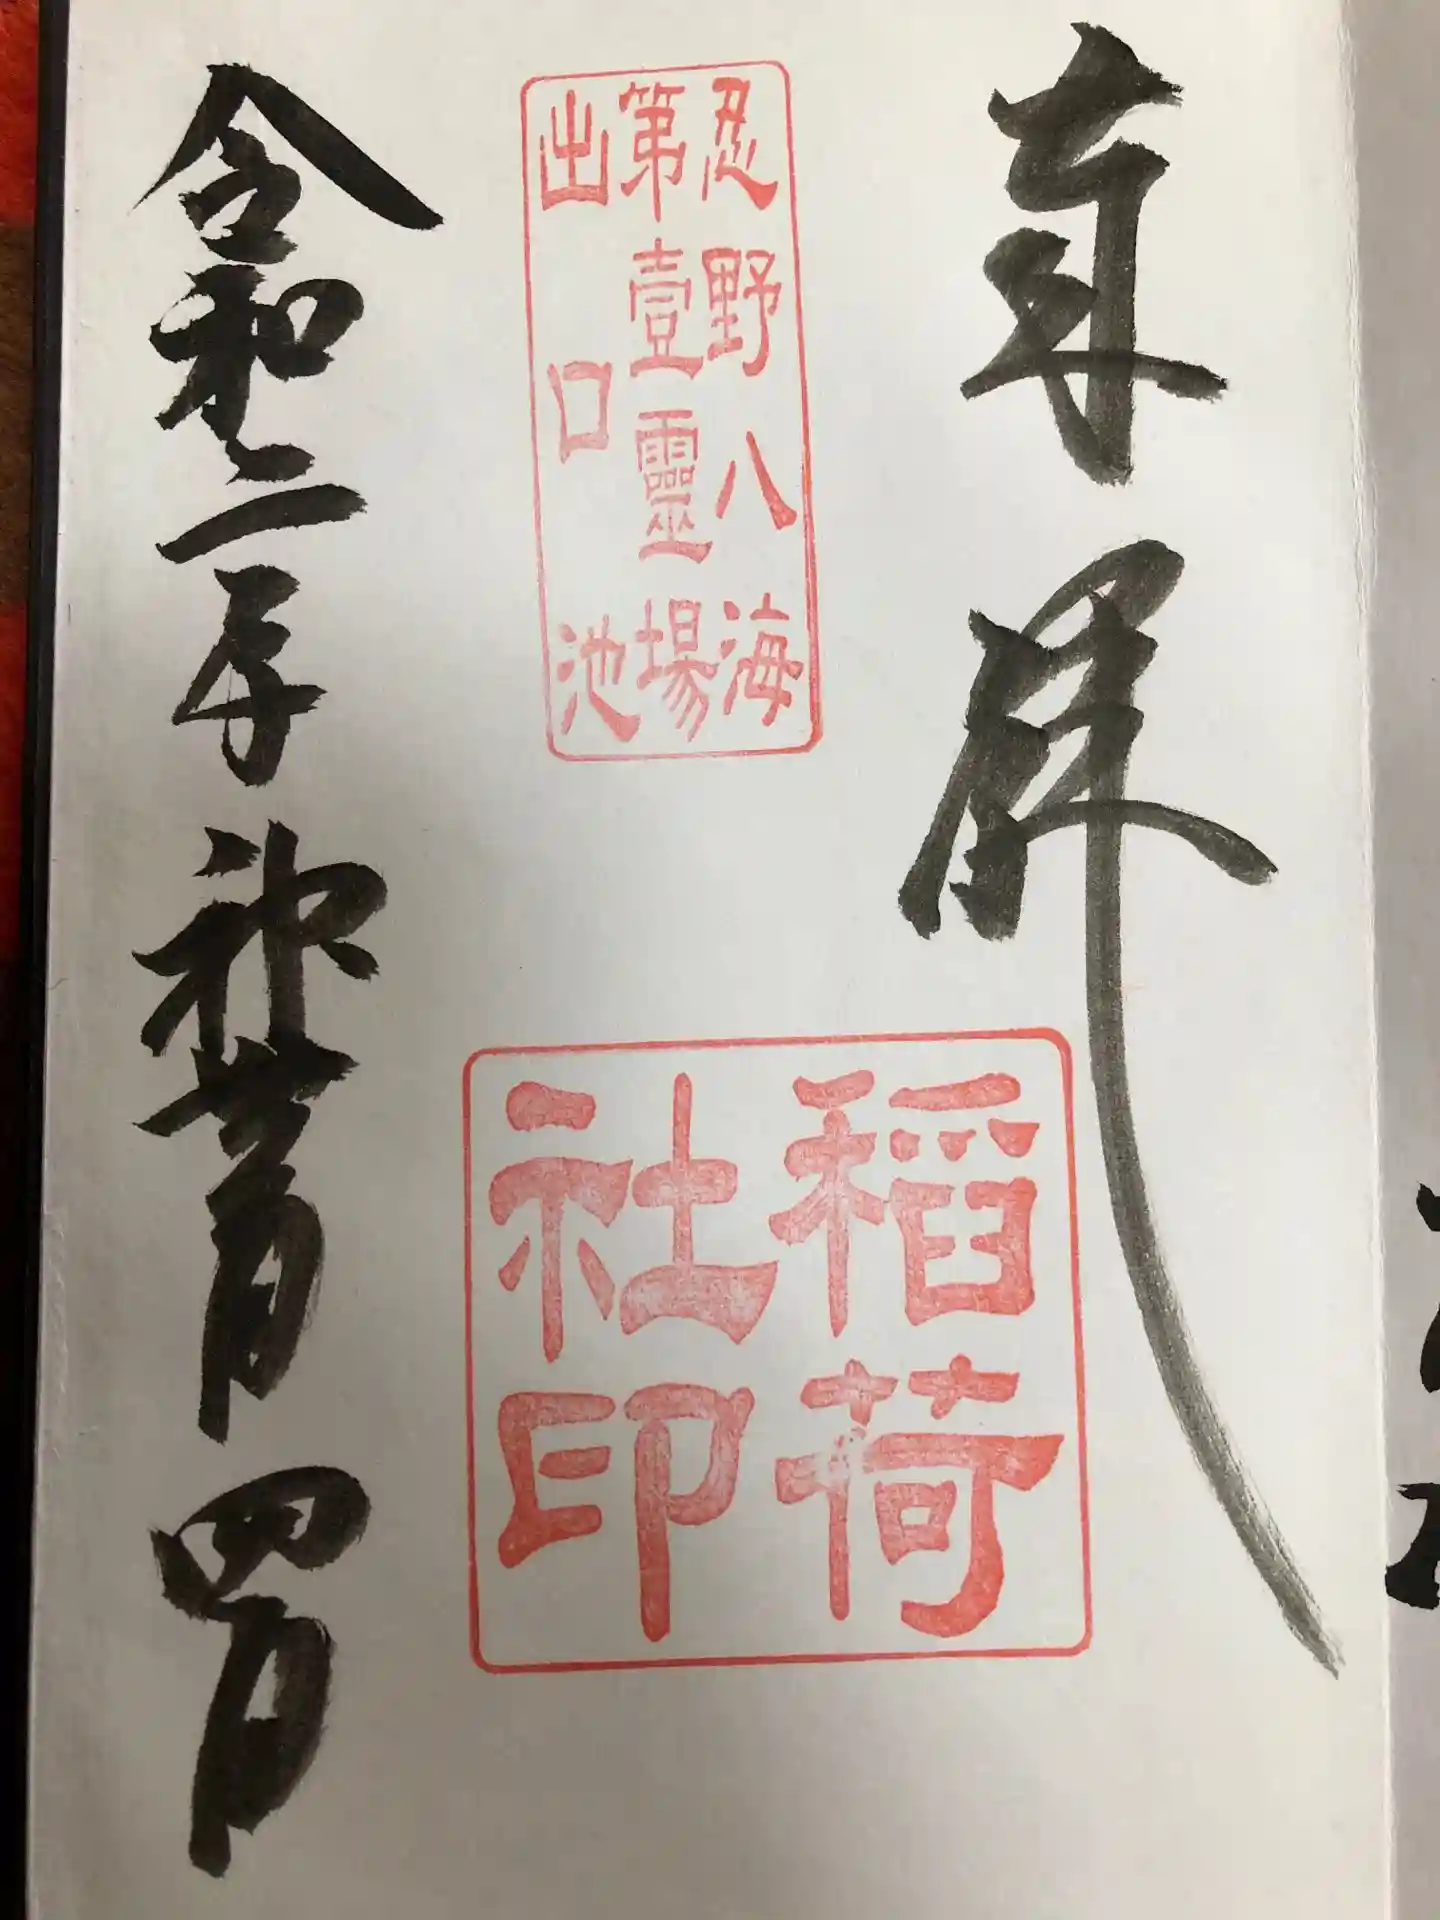 奉拝
忍野八海
第壹靈場
出口池
稲荷
社印
令和二年 神無月 四日